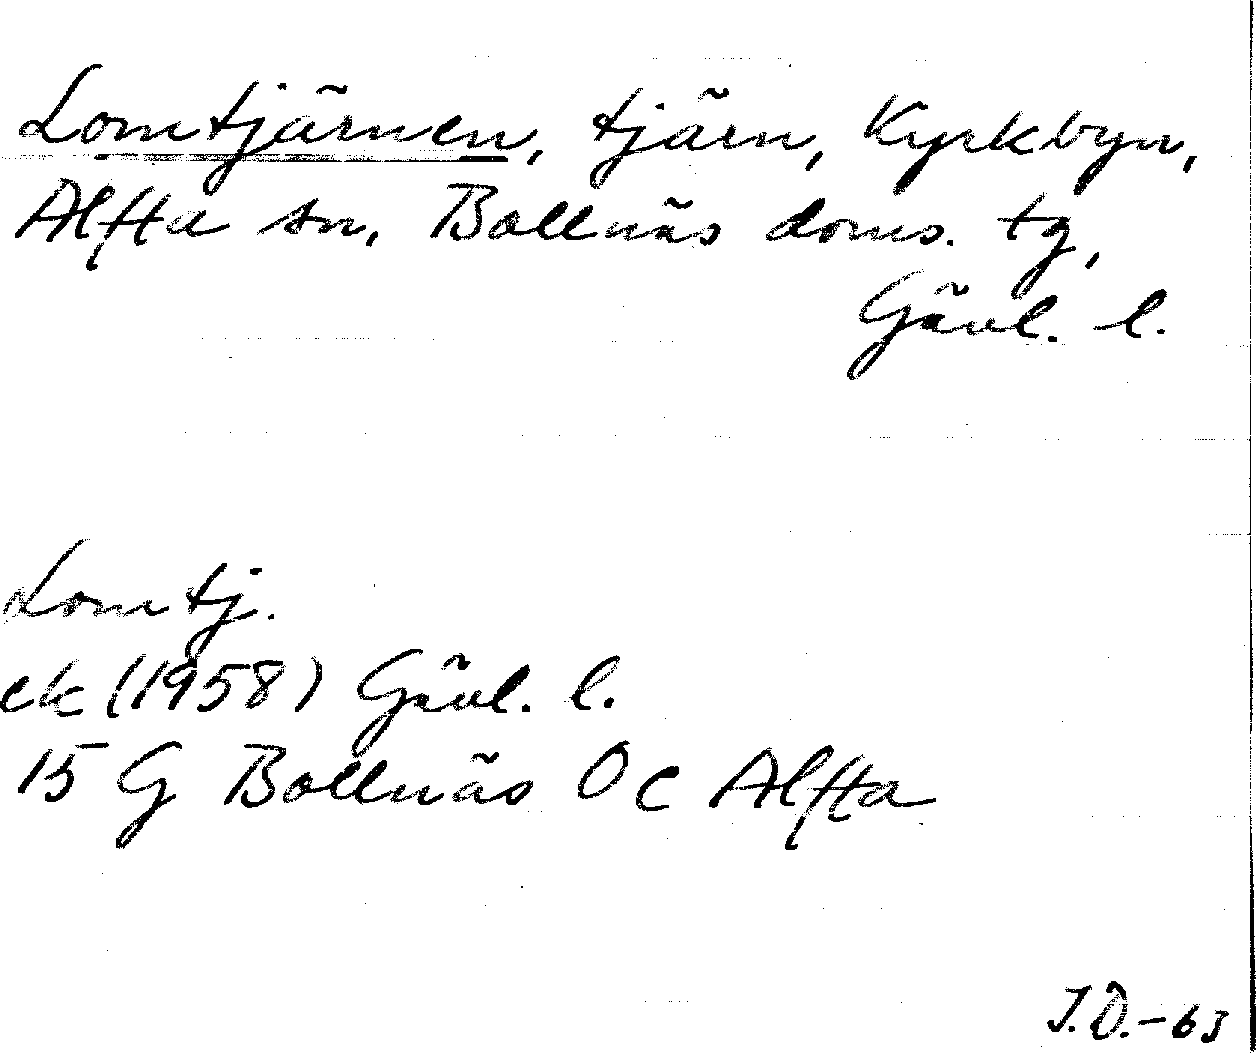 Lomtjärnen, tjärn, Kyrkbyn,
Alfta sn, Bollnäs doms. tg,
Gävl. l.
Lomtj.
ek (1958) Gävl. l.
15 G Bollnäs Oc Alfta
J.Ö.-63